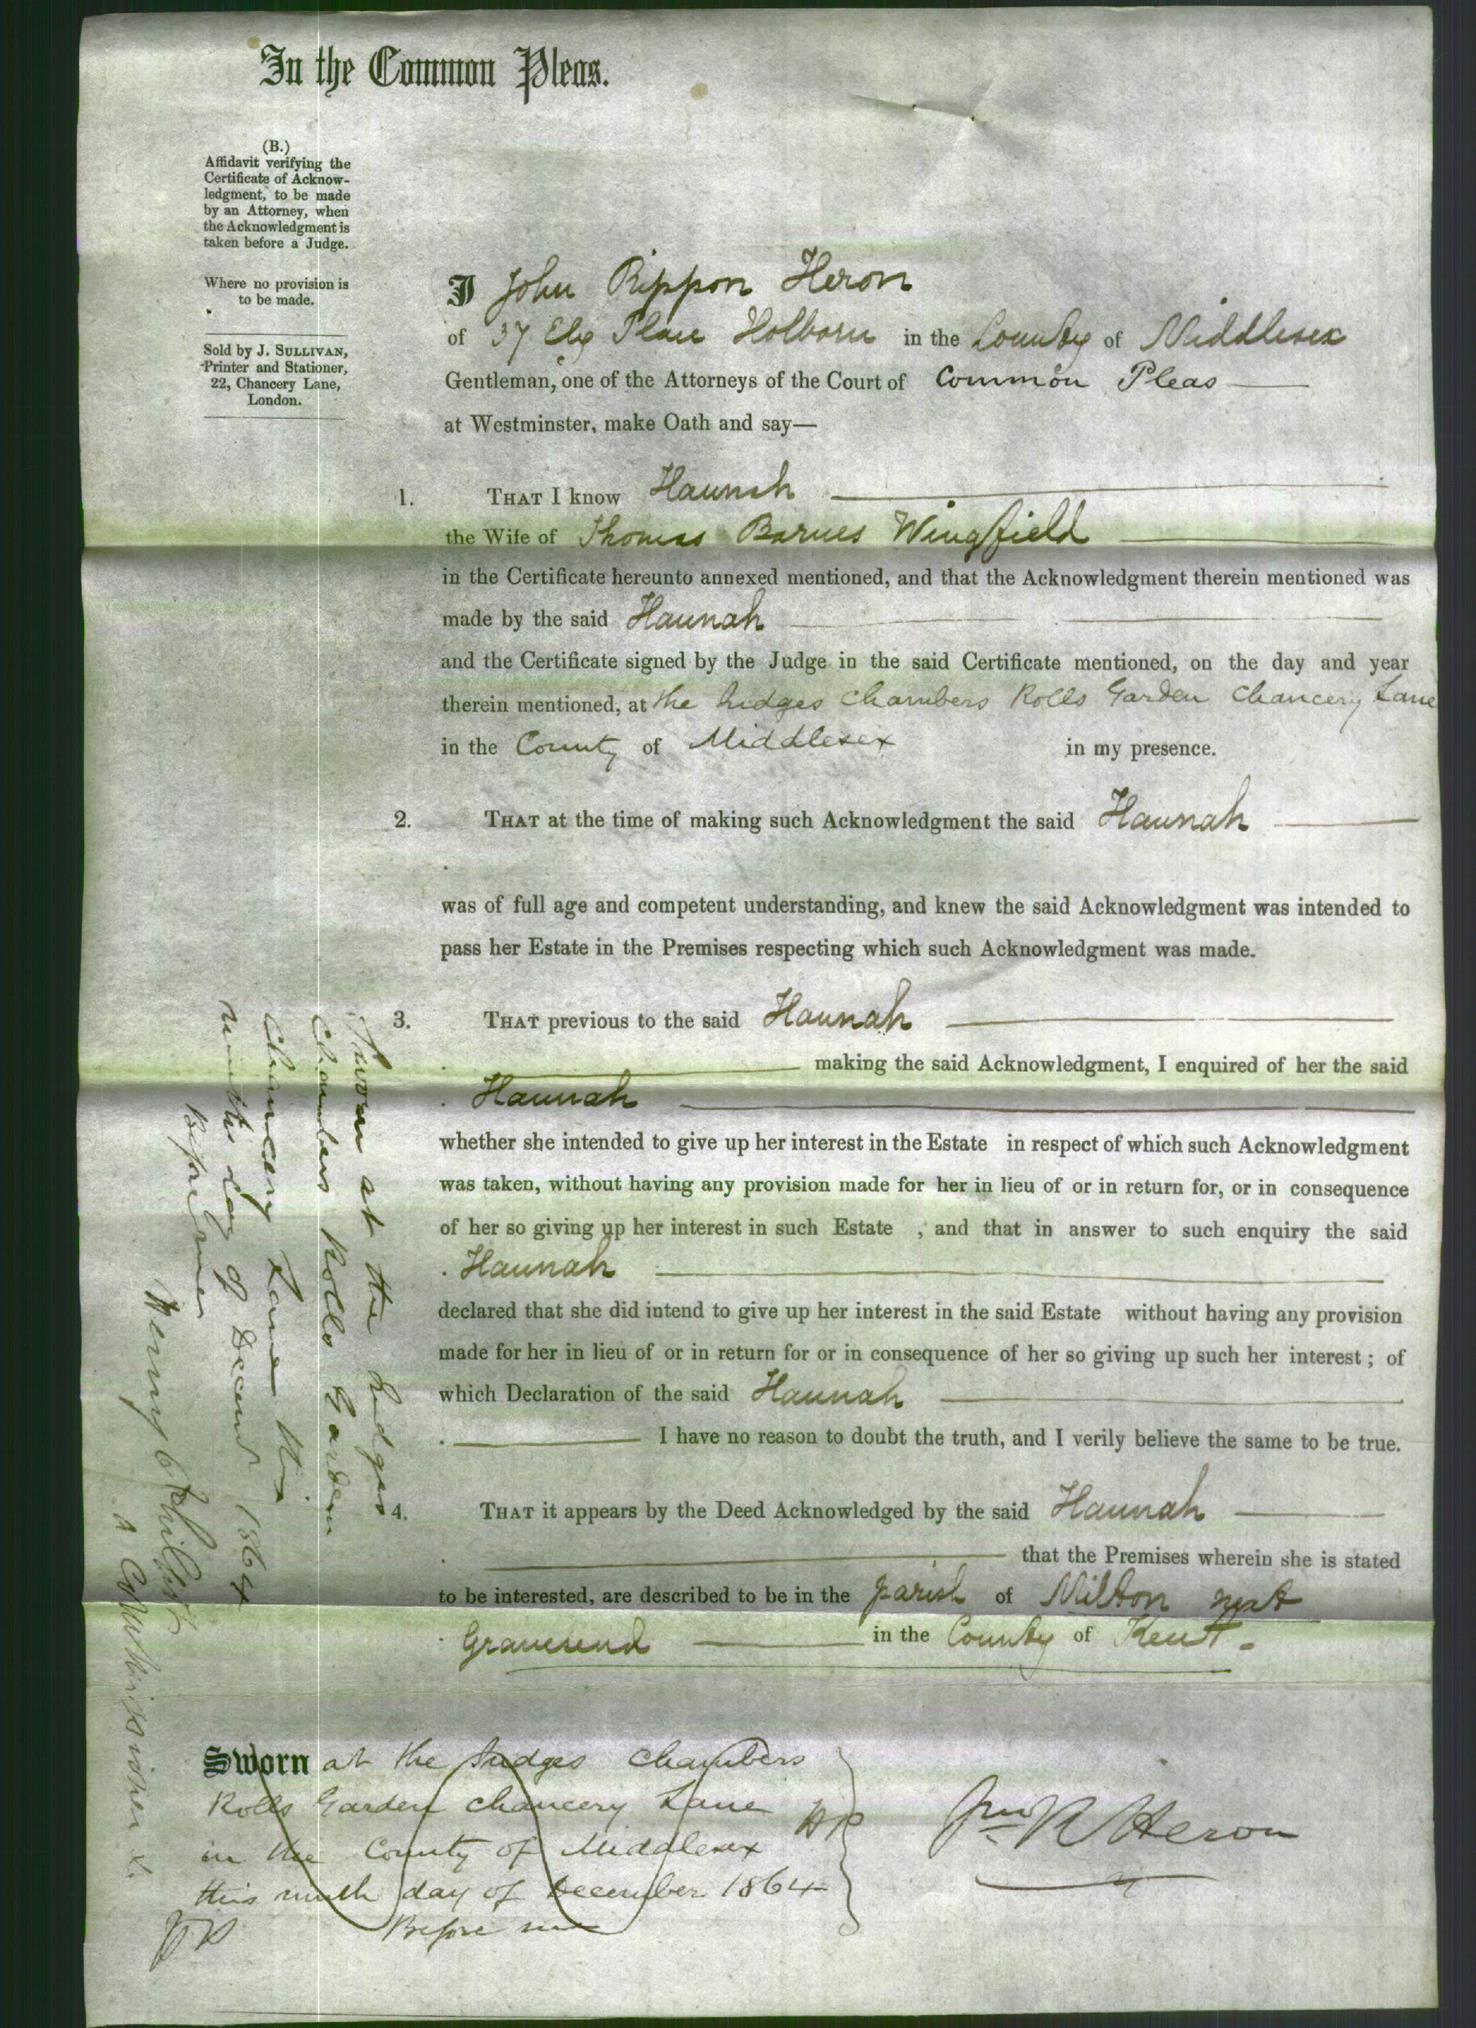 In the Common Pleas.
(B.)
Affidavit verifying the
Certificate of Acknow-
ledgment, to be made
by an Attorney, when
the Acknowledgment is
taken before a Judge.
Where no provision is
to be made.
Sold by J. SULLIVAN,
Printer and Stationer,
22, Chancery Lane,
London.
I John Rippon Heron
of 37 Ely Place Holborn in the County of Middlesex
Gentleman, one of the Attorneys of the Court of Common Pleas
at Westminster, make Oath and say—
1. THAT I know Hannah
the Wife of Thomas Barnes Wingfield
in the Certificate hereunto annexed mentioned, and that the Acknowledgment therein mentioned was
made by the said Hannah
and the Certificate signed by the Judge in the said Certificate mentioned, on the day and year
therein mentioned, at the Judges Chambers Rolls Garden Chancery Lane
in the County of Middlesex in my presence.
2. THAT at the time of making such Acknowledgment the said Hannah
was of full age and competent understanding, and knew the said Acknowledgment was intended to
pass her Estate in the Premises respecting which such Acknowledgment was made.
3. THAT previous to the said Hannah
making the said Acknowledgment, I enquired of her the said
Hannah
whether she intended to give up her interest in the Estate in respect of which such Acknowledgment
was taken, without having any provision made for her in lieu of or in return for, or in consequence
of her so giving up her interest in such Estate , and that in answer to such enquiry the said
Hannah
declared that she did intend to give up her interest in the said Estate without having any provision
made for her in lieu of or in return for or in consequence of her so giving up such her interest; of
which Declaration of the said Hannah
I have no reason to doubt the truth, and I verily believe the same to be true.
4. THAT it appears by the Deed Acknowledged by the said Hannah
that the Premises wherein she is stated
to be interested, are described to be in the parish of Milton next
Gravesend in the County of Kent.
Sworn at the Judges Chambers
Rolls Garden Chancery Lane
in the County of Middlesex
this ninth day of December 1864
Before me
HP
HP
Jno R Heron
Sworn at the Judges
Chambers Rolls Garden
Chancery Lane this
ninth day of Decemr 1864
Before me
Henry
A Commissioner &c.